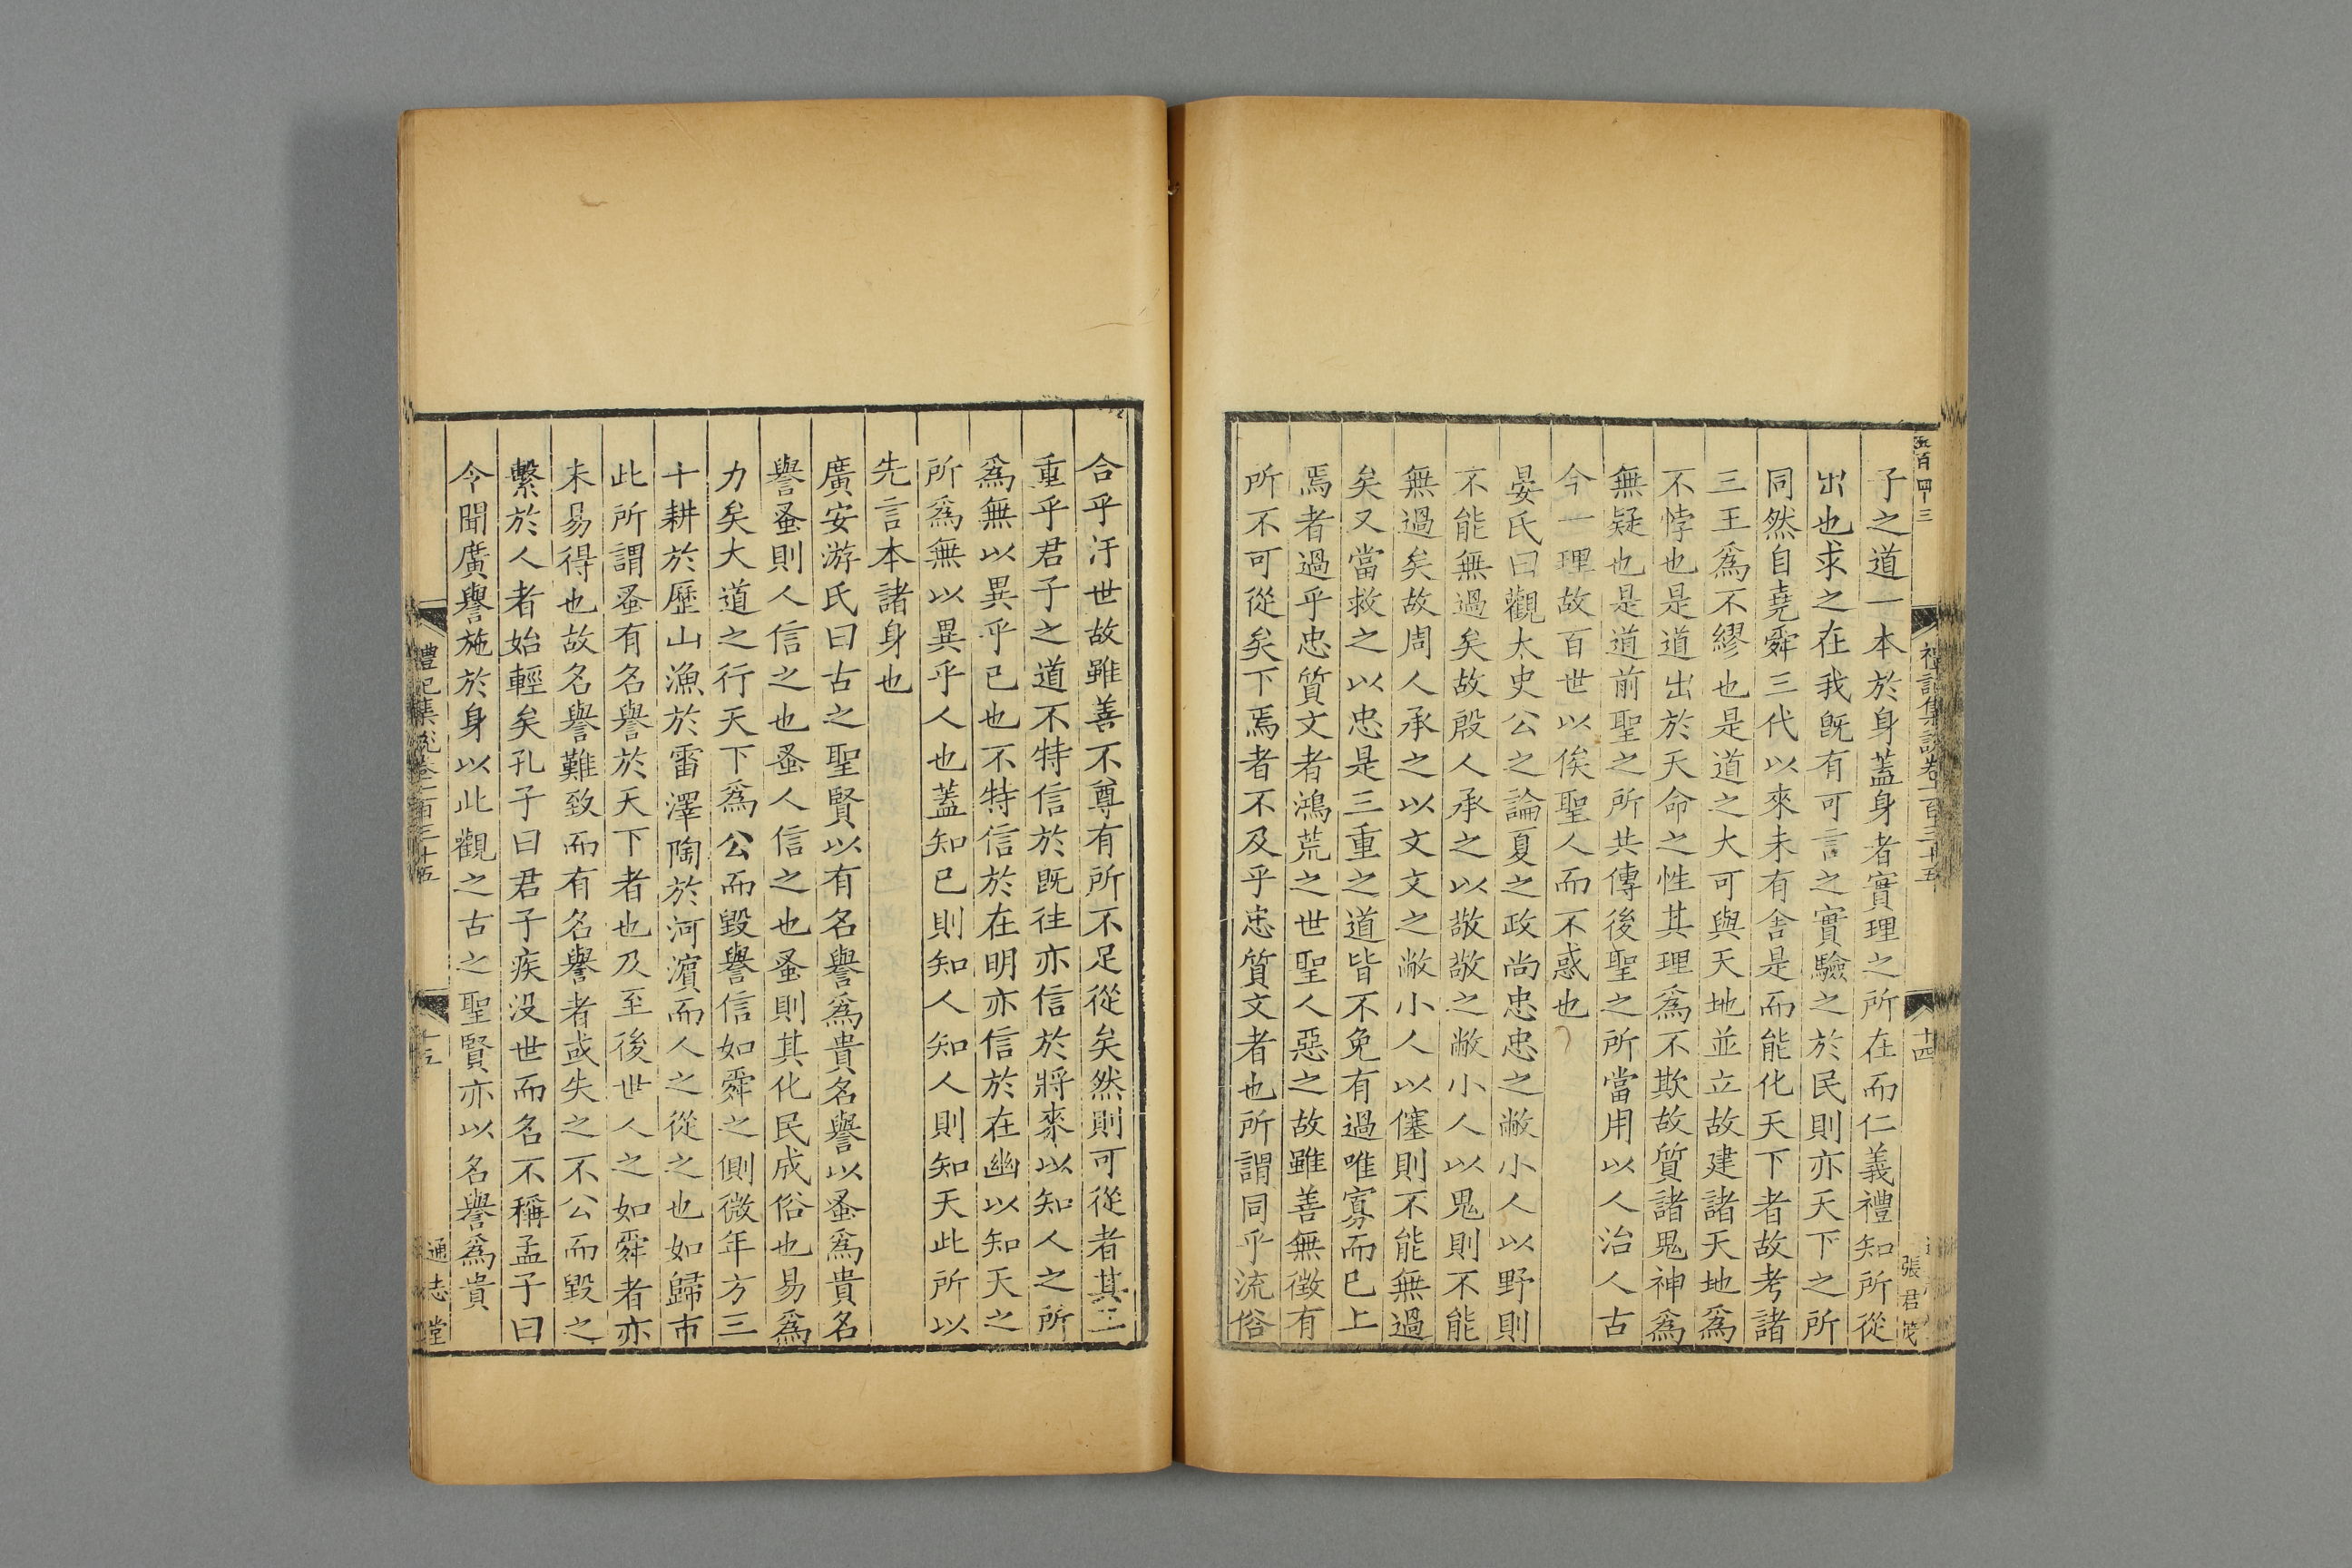 五百四十三
禮記集說卷一百三十五
十四
張君茂
子之道一本於身蓋身者實理之所在而仁義禮知所從
出也求之在我旣有可言之實驗之於民則亦天下之所
同然自堯舜三代以來未有舍是而能化天下者故考諸
三王爲不繆也是道之大可與天地並立故建諸天地爲
不悖也是道出於天命之性其理爲不欺故質諸鬼神爲
無疑也是道前聖之所共傳後聖之所當用以人治人古
今一理故百世以俟聖人而不惑也
晏氏曰觀太史公之論夏之政尚忠忠之敝小人以野則
不能無過矣故殷人承之以敬敬之敝小人以鬼則不能
無過矣故周人承之以文文之敝小人以僿則不能無過
矣又當救之以忠是三重之道皆不免有過唯寡而已上
焉者過乎忠質文者鴻荒之世聖人惡之故雖善無徵有
所不可從矣下焉者不及乎忠質文者也所謂同乎流俗
合乎汙世故雖善不尊有所不足從矣然則可從者其三
重乎君子之道不特信於旣往亦信於將來以知人之所
爲無以異乎已也不特信於在明亦信於在幽以知天之
所爲無以異乎人也蓋知已則知人知人則知天此所以
先言本諸身也
廣安游氏曰古之聖賢以有名譽爲貴名譽以蚤爲貴名
譽蚤則人信之也蚤人信之也蚤則其化民成俗也易爲
力矣大道之行天下爲公而毀譽信如舜之側微年方三
十耕於歷山漁於雷澤陶於河濱而人之從之也如歸市
此所謂蚤有名譽於天下者也及至後世人之如舜者亦
未易得也故名譽難致而有名譽者或失之不公而毀之
繫於人者始輕矣孔子曰君子疾没世而名不稱孟子曰
令聞廣譽施於身以此觀之古之聖賢亦以名譽爲貴
禮記集說卷一百三十五
十五
通志堂